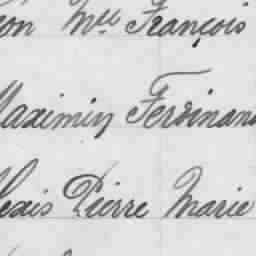 ion Mll François
Maximin Ferdinand
lexis Pierre Marie